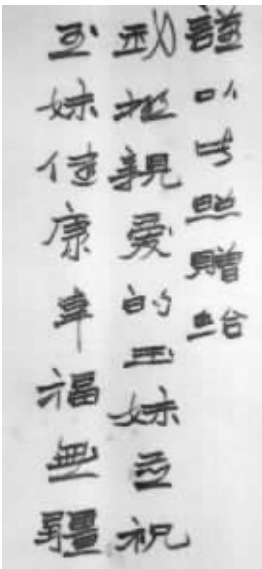 謹以此照贈给
我最親愛的玉妹並祝
玉妹健康幸福無疆